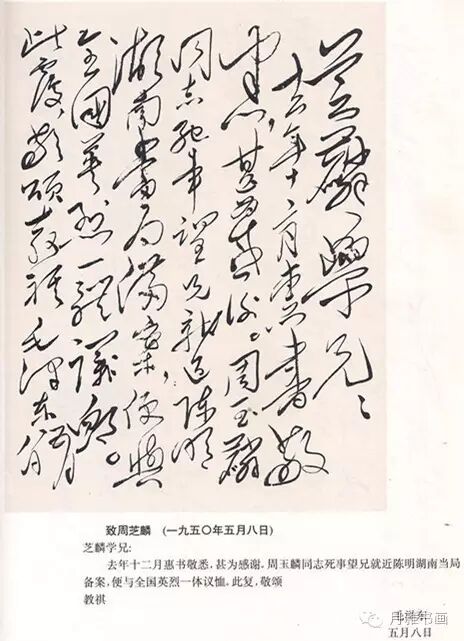 芝麟學兄：
去年十二月惠書敬
悉，甚為感谢。周玉麟
同志死事望兄就近陈明
湖南當局備案，便與
全國英烈一體議卹。
此覆，敬頌教祺 毛泽东 五月八日
致周芝麟 (一九五〇年五月八日)
芝麟学兄：
去年十二月惠书敬悉，甚为感谢。周玉麟同志死事望兄就近陈明湖南当局
备案，便与全国英烈一体议恤。此复，敬颂
教祺
毛泽东
五月八日
月雅书画